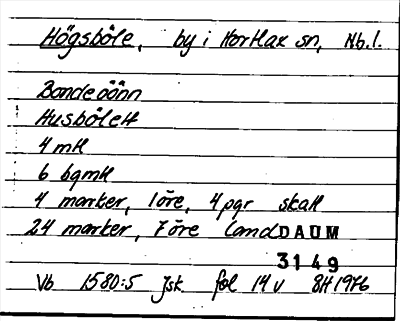 Högsböle, by i Hortlax sn, Nb.l.
Bondeöönn
Husbölett
4 mtl
6 bgmtl
4 marker, 1öre, 4pgr skatt
24 marker, 7öre land DAUM
3149
Vb 1580:5 Jsk. fol 14v BH 1976